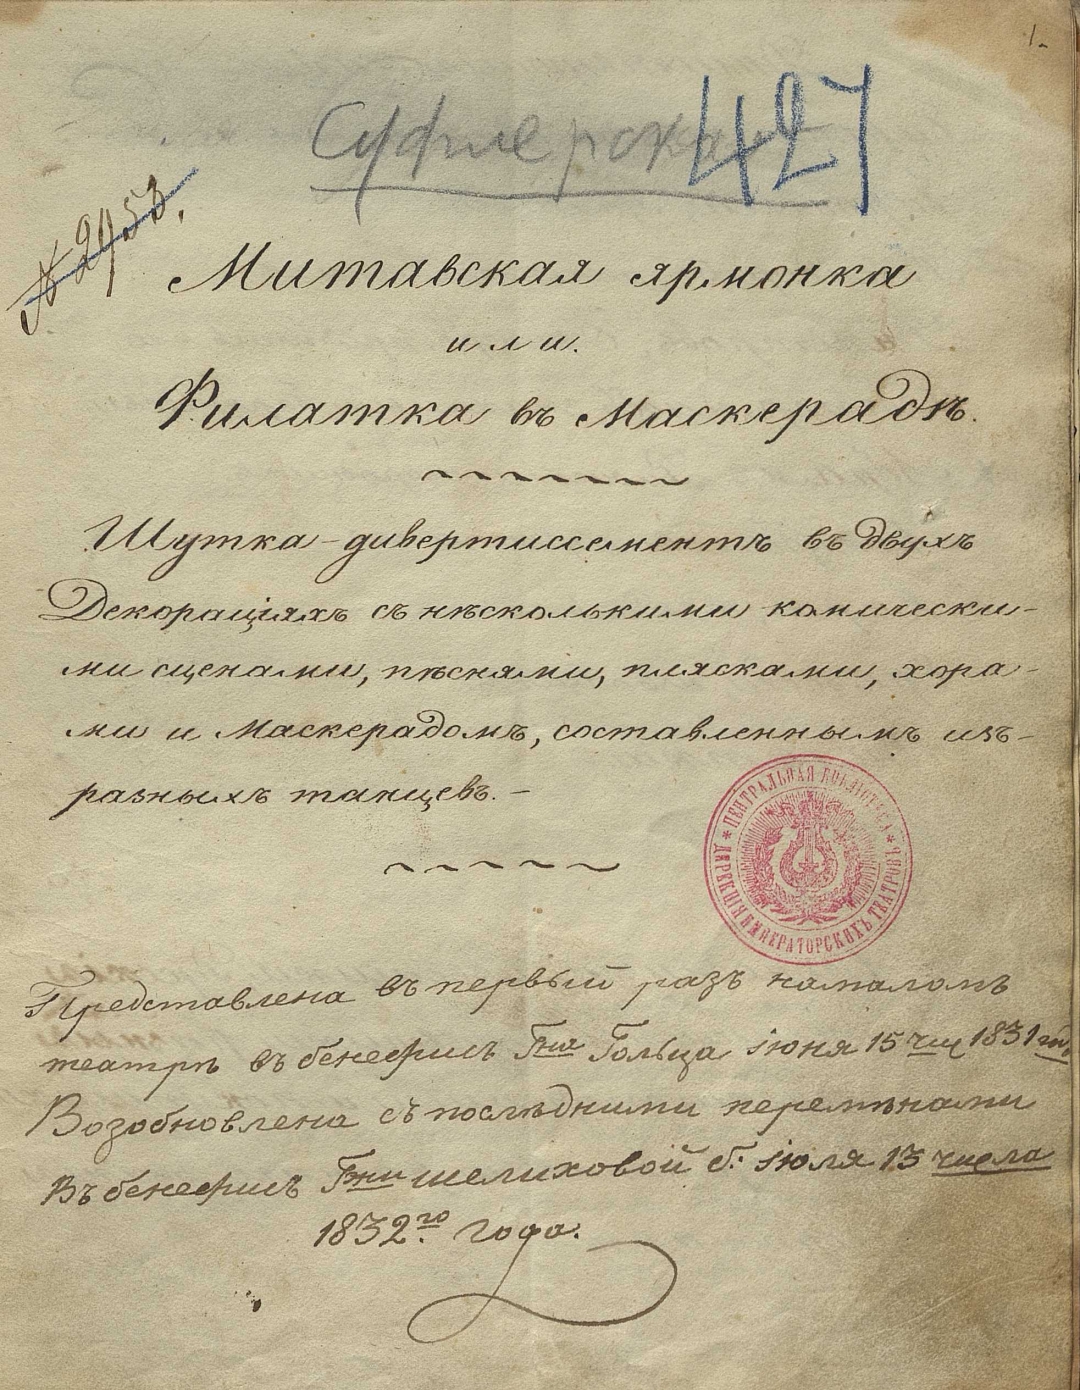 1.
Суфлерская
427
№ 2953.
Митавская ярмонка
или.
Филатка въ Маскерадѣ.
Шутка-дивертиссементъ въ двухъ
Декораціяхъ съ нѣсколькими комически-
ми сценами, пѣснями, плясками, хора-
ми и Маскерадомъ, составленнымъ изъ-
разныхъ танцевъ.-
ЦЕНТРАЛЬНАЯ БИБЛІОТЕКА
ДИРЕКЦІИ ИМПЕРАТОРСКИХЪ ТЕАТРОВЪ
Представлена въ первый разъ намаломъ
театрѣ въ бенефисъ Гна Гольца іюня 15 чис 1831 го
Возобновлена съ послѣдними перемѣнами
Въ бенефисъ Гжи шелиховой б. іюля 13 числа
1832го года.